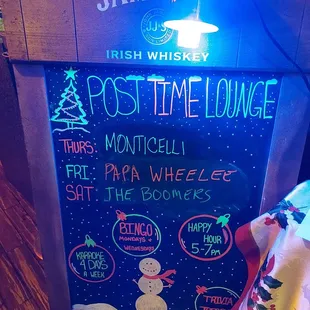 JJ&S
IRISH WHISKEY
POST TIME LOUNGE
THURS: MONTICELLI
FRI: PAPA WHEELEE
SAT: THE BOOMERS
BINGO
MONDAYS
WEDNESDAYS
HAPPY
HOUR
5-7PM
KARAOKE
4 DAYS
A WEEK
TRIVIA